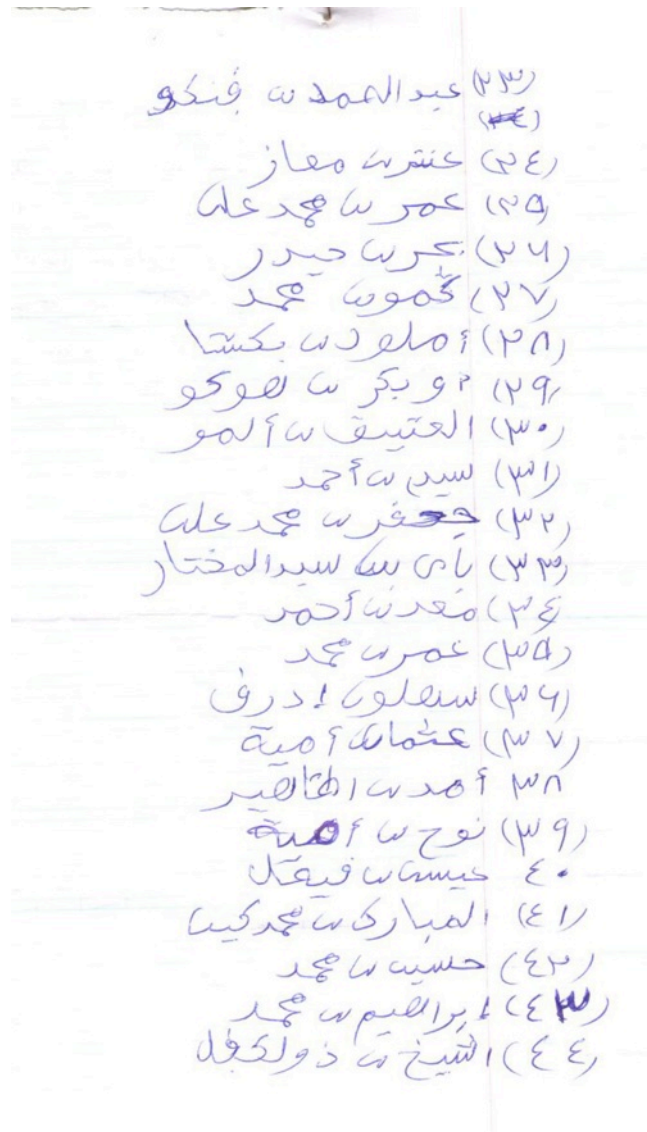 (٢٣) عبد الصمد بن فنكو
(٢٤)
(٢٤) عنتر بن معاز
(٢٥) عمر بن محمد علي
(٢٦) بحر بن حيدر
(٢٧) بن محمد
(٢٨) أملود بن بكشتا
(٢٩) أو بكر بن هوكو
(٣٠) العتيق بن ألمو
(٣١) سيد بن أحمد
(٣٢) جعفر بن محمد علي
(٣٣) باي بن سيد المختار
(٣٤) بن أحمر
(٣٥) عمر بن محمد
(٣٦) بن إدرف
(٣٧) عثمان أمية
٣٨ أمد بن الطاهير
(٣٩) نوح بن أمية
٤٠ عيسى بن فيقل
(٤١) المبارك بن محمد
(٤٢) حسين بن محمد
(٤٣) إبراهيم بن محمد
(٤٤) الشيخ بن ذولكفل